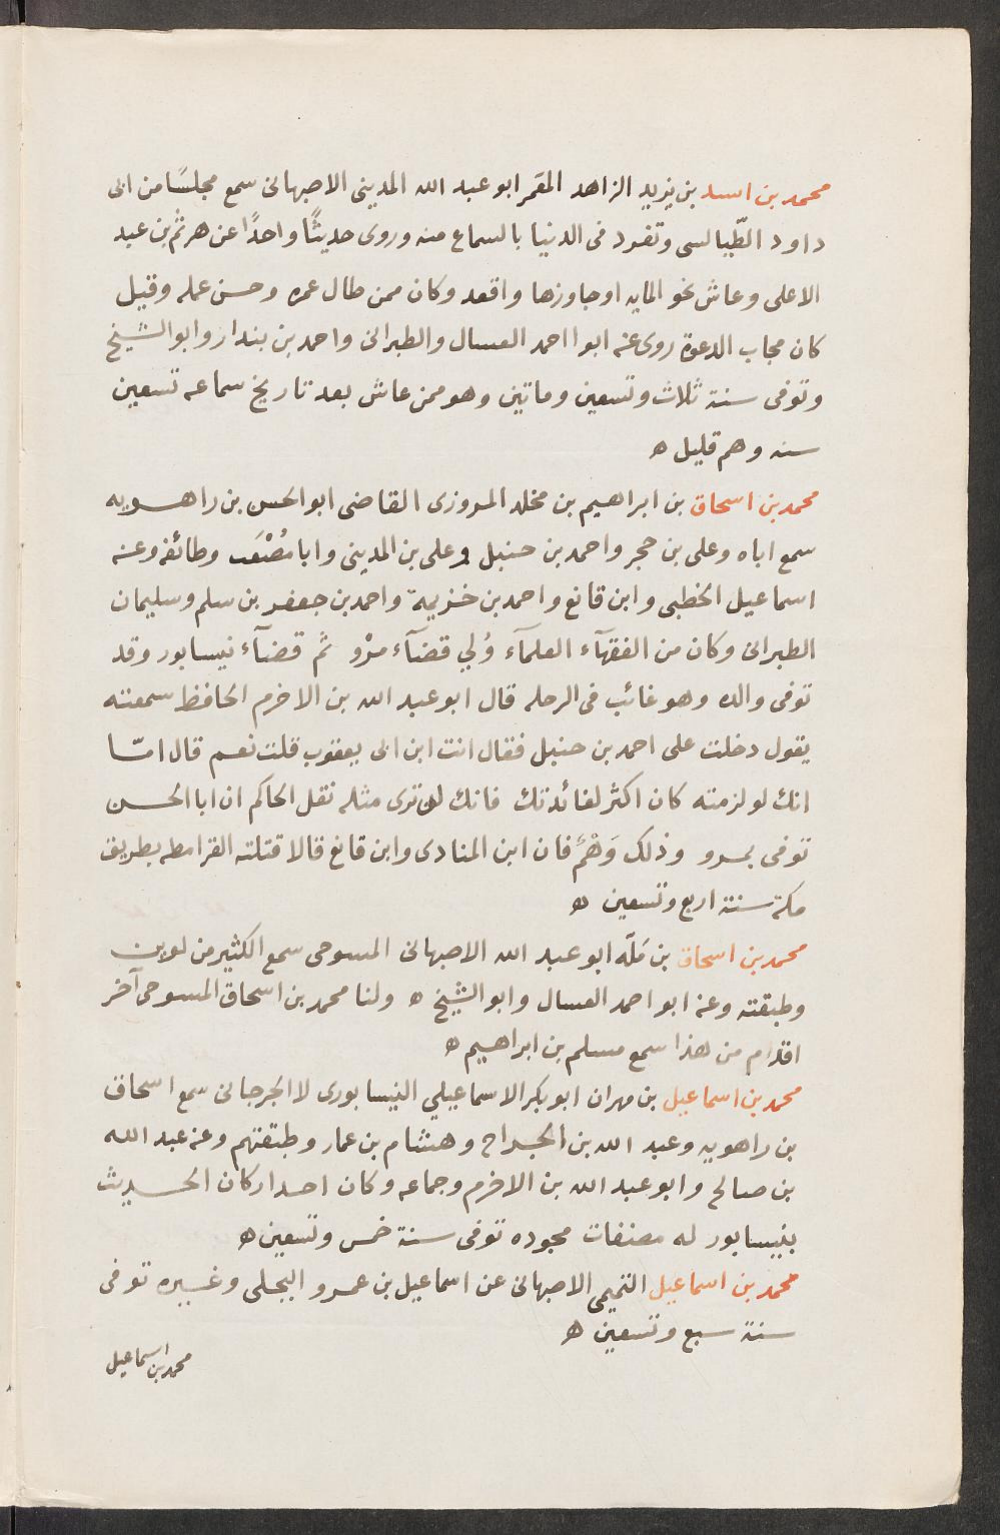 محمد بن اسد بن يزيد الزاهد المقمر ابو عبد الله المدينى الاصبهانى سمع مجلسًا من ابى
داود الطّيالسى وتفرد فى الدنيا بالسماع منه وروى حديثًا واحدًا عن هرثم بن عبد
الاعلى وعاش نحو المايه اوجاوزها واقعد وكان ممن طال عمره وحسن عمله وقيل
كان مجاب الدعوة روى عنه ابوا احمد العسال والطبرانى واحمد بن بندار وابو الشيخ
وتوفى سنة ثلاث وتسعين وماتين وهو ممن عاش بعد تاريخ سماعه تسعين
سنه وهم قليل ه
محمد بن اسحاق بن ابراهيم بن مخلد المروزى القاضى ابو الحسن بن راهويه
سمع اباه وعلى بن حجر واحمد بن حنبل وعلى بن المدينى وابا مُصْعَب وطائفه وعنه
اسماعيل الخطبى وابن قانع واحمد بن خزيمة واحمد بن جعفر بن سلم وسليمان
الطبرانى وكان من الفقهآء العلمآء وُلي قضآء مرْو ثم قضآء نيسابور وقد
توفى والده وهو غائب فى الرحله قال ابو عبد الله بن الاخرم الحافظ سمعته
يقول دخلت على احمد بن حنبل فقال انت ابن ابى يعقوب قلت نعم قال امّا
انك لو لزمته كان اكثر لفائدتك فانك لن ترى مثله نقل الحاكم ان ابا الحسن
توفى بمرو وذلك وَهْمٌ فان ابن المنادى وابن قانع قالا قتلته القرامطه بطريق
مكة سنة اربع وتسعين ه
محمد بن اسحاق بن مَلّه ابو عبد الله الاصبهانى المسوحى سمع الكثير من لوين
وطبقته وعنه ابو احمد العسال وابو الشيخ ه ولنا محمد بن اسحاق المسوحى آخر
اقدام من هذا سمع مسلم بن ابراهيم ه
محمد بن اسماعيل بن مهران ابو بكر الاسماعيلي النيسابورى لا الجرجانى سمع اسحاق
بن راهويه وعبد الله بن الجراح وهشام بن عمار وطبقتهم وعنه عبد الله
بن صالح وابو عبد الله بن الاخرم وجماعه وكان احد اركان الحديث
بنيسابور له مصنفات مجوده توفى سنة خمس وتسعين ه
محمد بن اسماعيل التميمى الاصبهانى عن اسماعيل بن عمرو البجلى وغيره توفى
سنة سبع وتسعين ه
محمد ابن اسماعيل